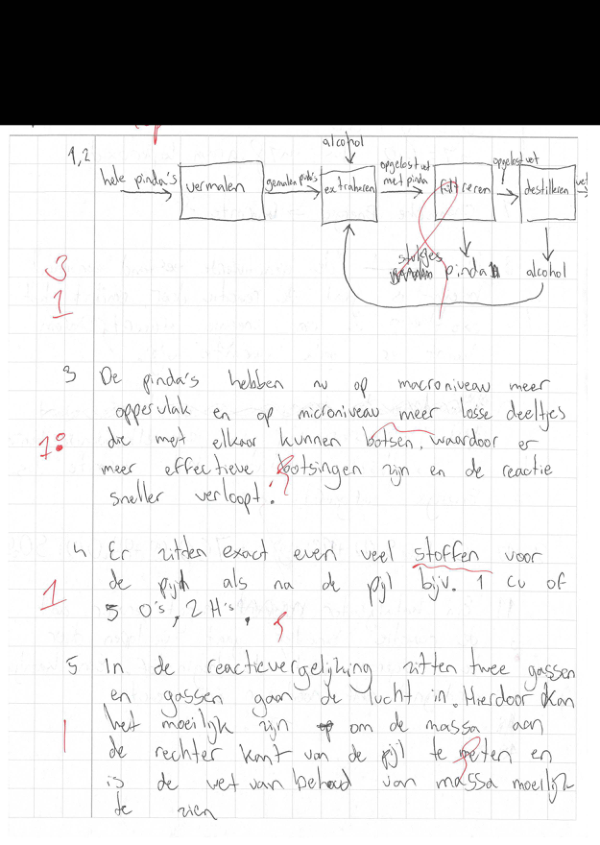 1,2
alcohol
hele pinda's
vermalen
gemalen pinda's
extraheren
opgelost vet
met pinda
filtreren
opgelost vet
destilleren
vet
stukjes
pinda
alcohol
3
1
3 De pinda's hebben nu op macroniveau meer
oppervlak en op microniveau meer losse deeltjes
1
die met elkaar kunnen botsen, waardoor er
meer effectieve botsingen zijn en de reactie
sneller verloopt.
4 Er zitten exact even veel stoffen voor
1
de pijl als na de pijl bijv. 1 Cu of
5 O's, 2 H's.
5 In de reactievergelijking zitten twee gassen
en gassen gaan de lucht in. Hierdoor kan
1
het moeilijk zijn om de massa aan
de rechter kant van de pijl te meten en
is de wet van behoud van massa moeilijk
te zien